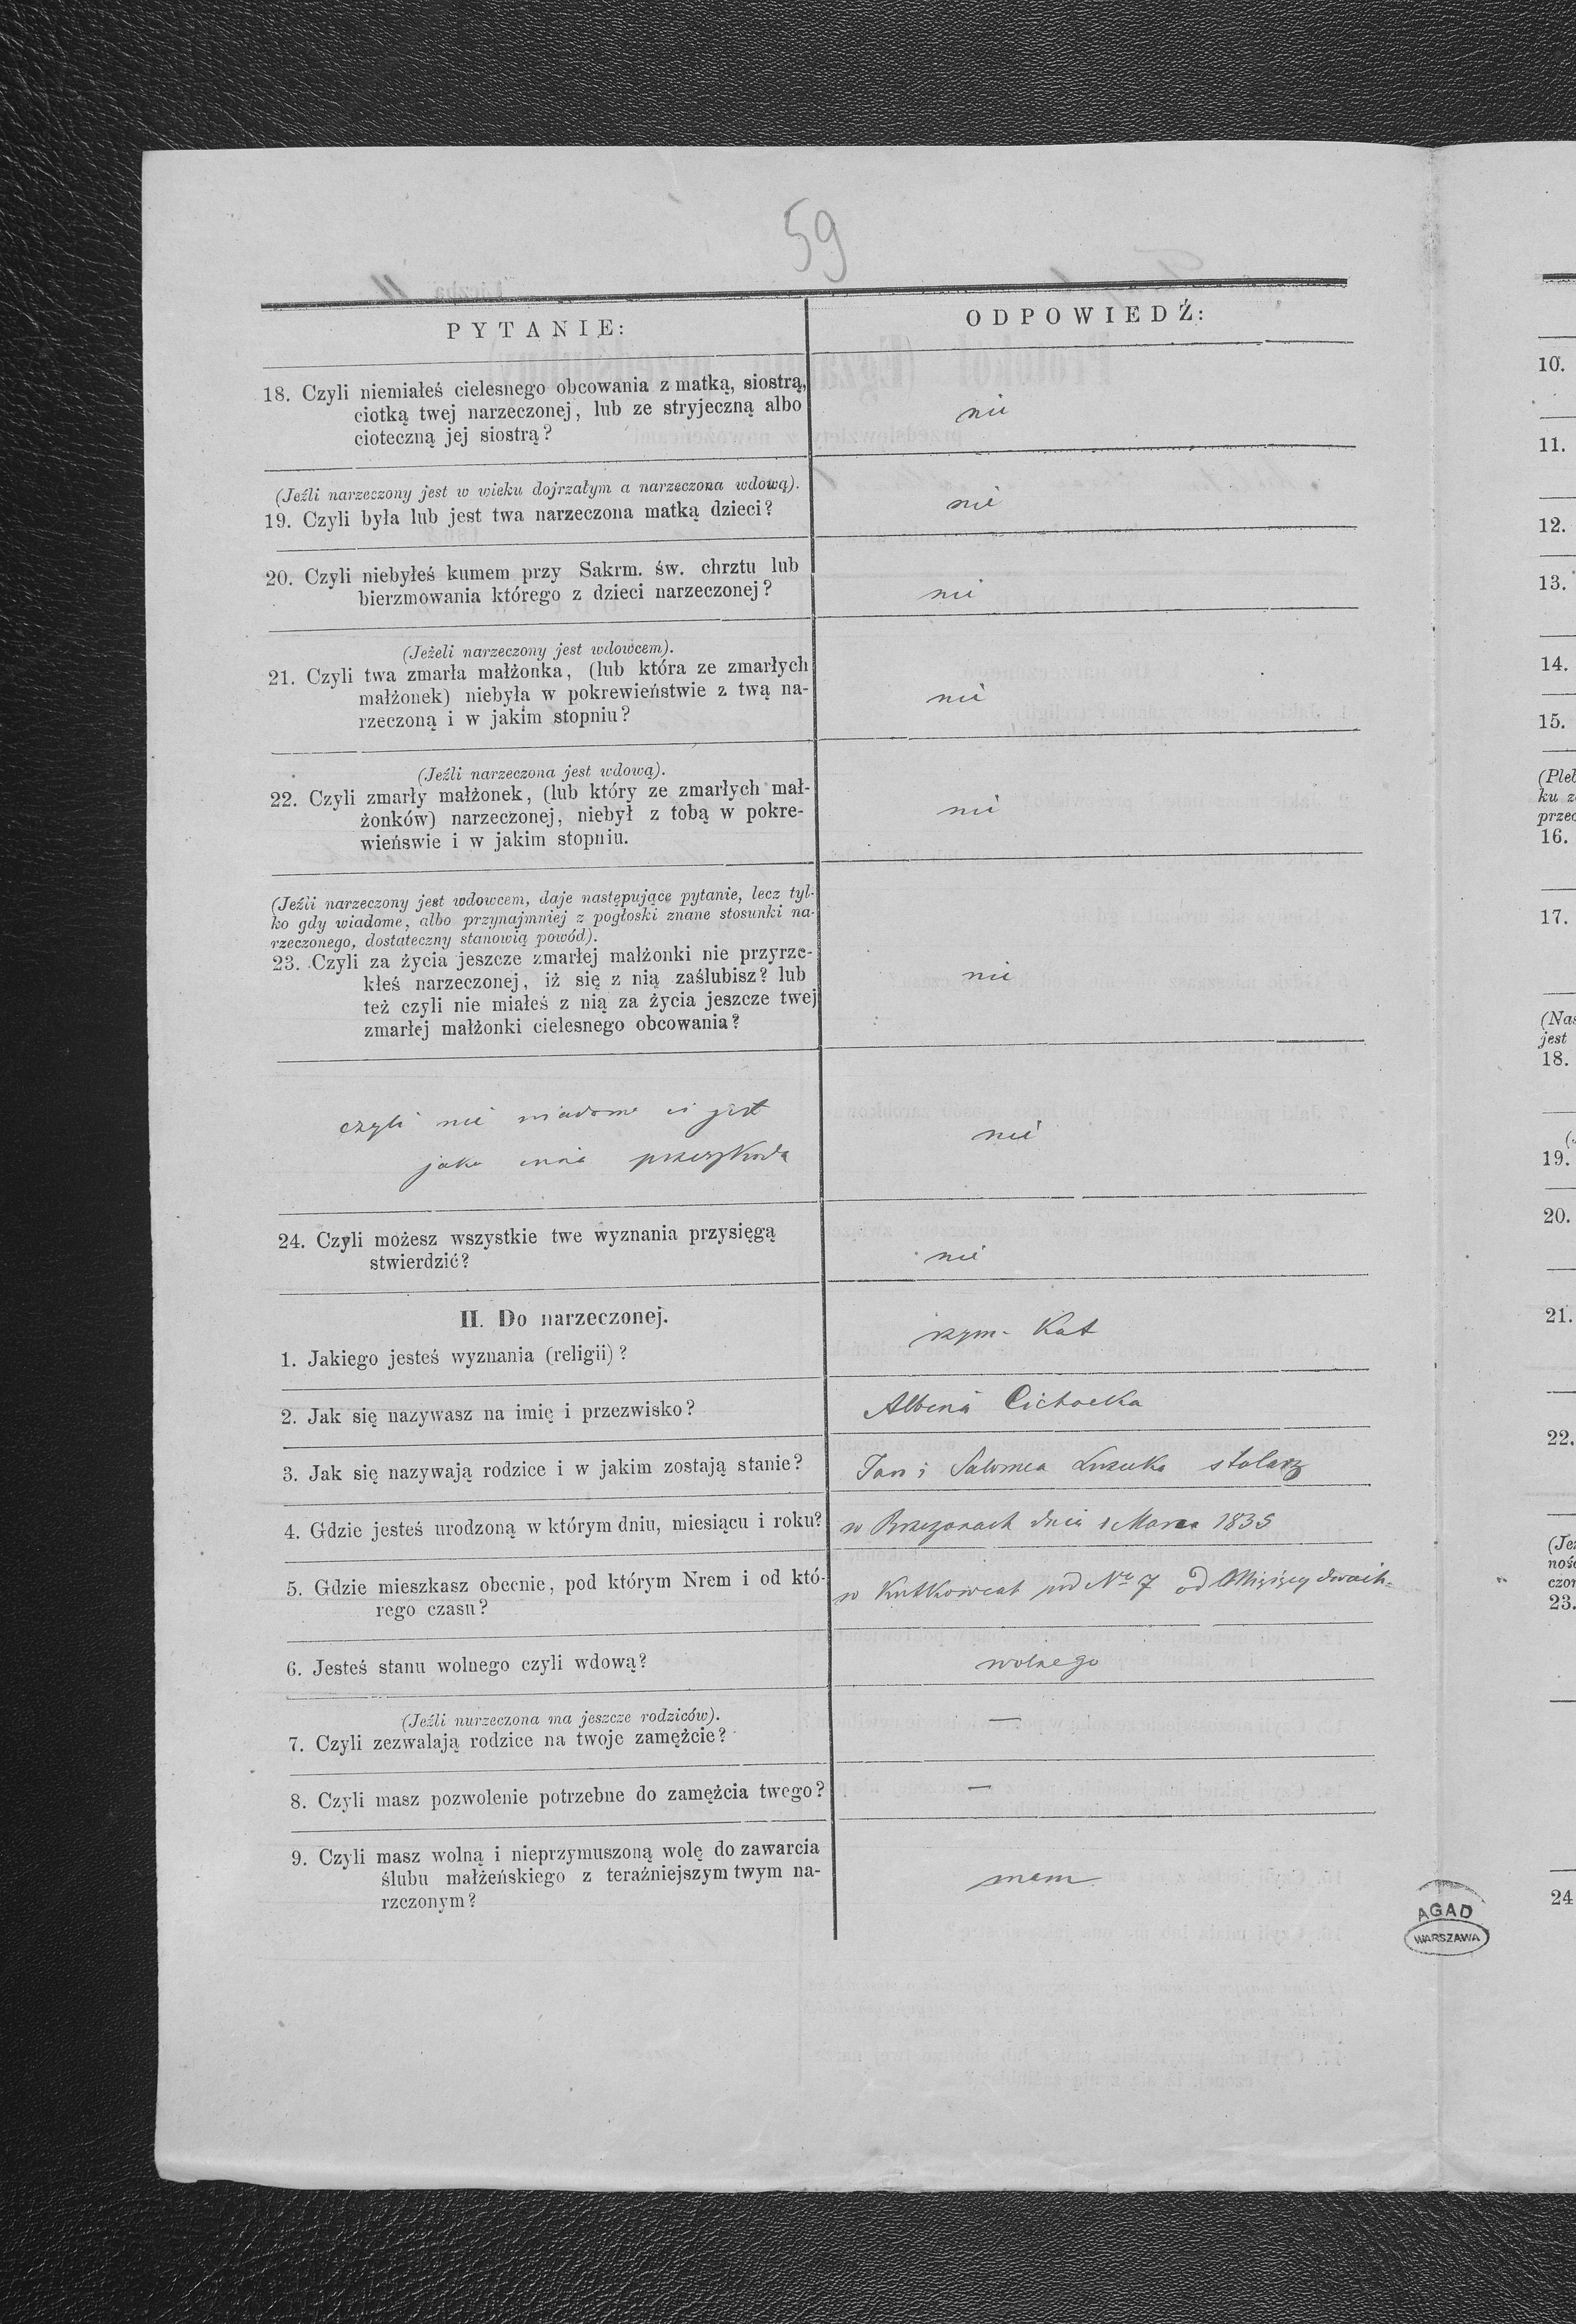 59
PYTANIE:
ODPOWIEDŹ:
18. Czyli niemiałeś cielesnego obcowania z matką, siostrą,
ciotką twej narzeczonej, lub ze stryjeczną albo
cioteczną jej siostrą?
nie
(Jeźli narzeczony jest w wieku dojrzałym a narzeczona wdową).
19. Czyli była lub jest twa narzeczona matką dzieci?
nie
20. Czyli niebyłeś kumem przy Sakrm. św. chrztu lub
bierzmowania którego z dzieci narzeczonej?
nie
(Jeżeli narzeczony jest wdowcem).
21. Czyli twa zmarła małżonka, (lub która ze zmarłych
małżonek) niebyła w pokrewieństwie z twą na-
rzeczoną i w jakim stopniu?
nie
(Jeźli narzeczona jest wdową).
22. Czyli zmarły małżonek, (lub który ze zmarłych mał-
żonków) narzeczonej, niebył z tobą w pokre-
wieńswie i w jakim stopniu.
nie
(Jeźli narzeczony jest wdowcem, daje następujące pytanie, lecz tyl-
ko gdy wiadome, albo przynajmniej z pogłoski znane stosunki na-
rzeczonego, dostateczny stanowią powód).
23. Czyli za życia jeszcze zmarłej małżonki nie przyrze-
kłeś narzeczonej, iż się z nią zaślubisz? lub
też czyli nie miałeś z nią za życia jeszcze twej
zmarłej małżonki cielesnego obcowania?
nie
czyli nie wiadome ci jest
jaka inna przeszkoda
nie
24. Czyli możesz wszystkie twe wyznania przysięgą
stwierdzić?
nie
II. Do narzeczonej.
1. Jakiego jesteś wyznania (religii)?
rzym. Kat
2. Jak się nazywasz na imię i przezwisko?
Albina Cichocka
3. Jak się nazywają rodzice i w jakim zostają stanie?
Jan i Salomea stolarz
4. Gdzie jesteś urodzoną w którym dniu, miesiącu i roku?
w Brzeżanach dnia 1 Marca 1835
5. Gdzie mieszkasz obecnie, pod którym Nrem i od któ-
rego czasu?
w Kutkowcach pod Nr 7 od Misięcy dwóch
6. Jesteś stanu wolnego czyli wdową?
wolnego
(Jeźli nurzeczona ma jeszcze rodziców).
7. Czyli zezwalają rodzice na twoje zamężcie?
—
8. Czyli masz pozwolenie potrzebne do zamężcia twego?
—
9. Czyli masz wolną i nieprzymuszoną wolę do zawarcia
ślubu małżeńskiego z teraźniejszym twym na-
rzczonym?
mam
AGAD
WARSZAWA
10.
11.
12.
13.
14.
15.
(Pleb
ku z
przed
16.
17.
(Nas
jest
18.
19.
20.
21.
22.
(Jeż
noś
czon
23.
24